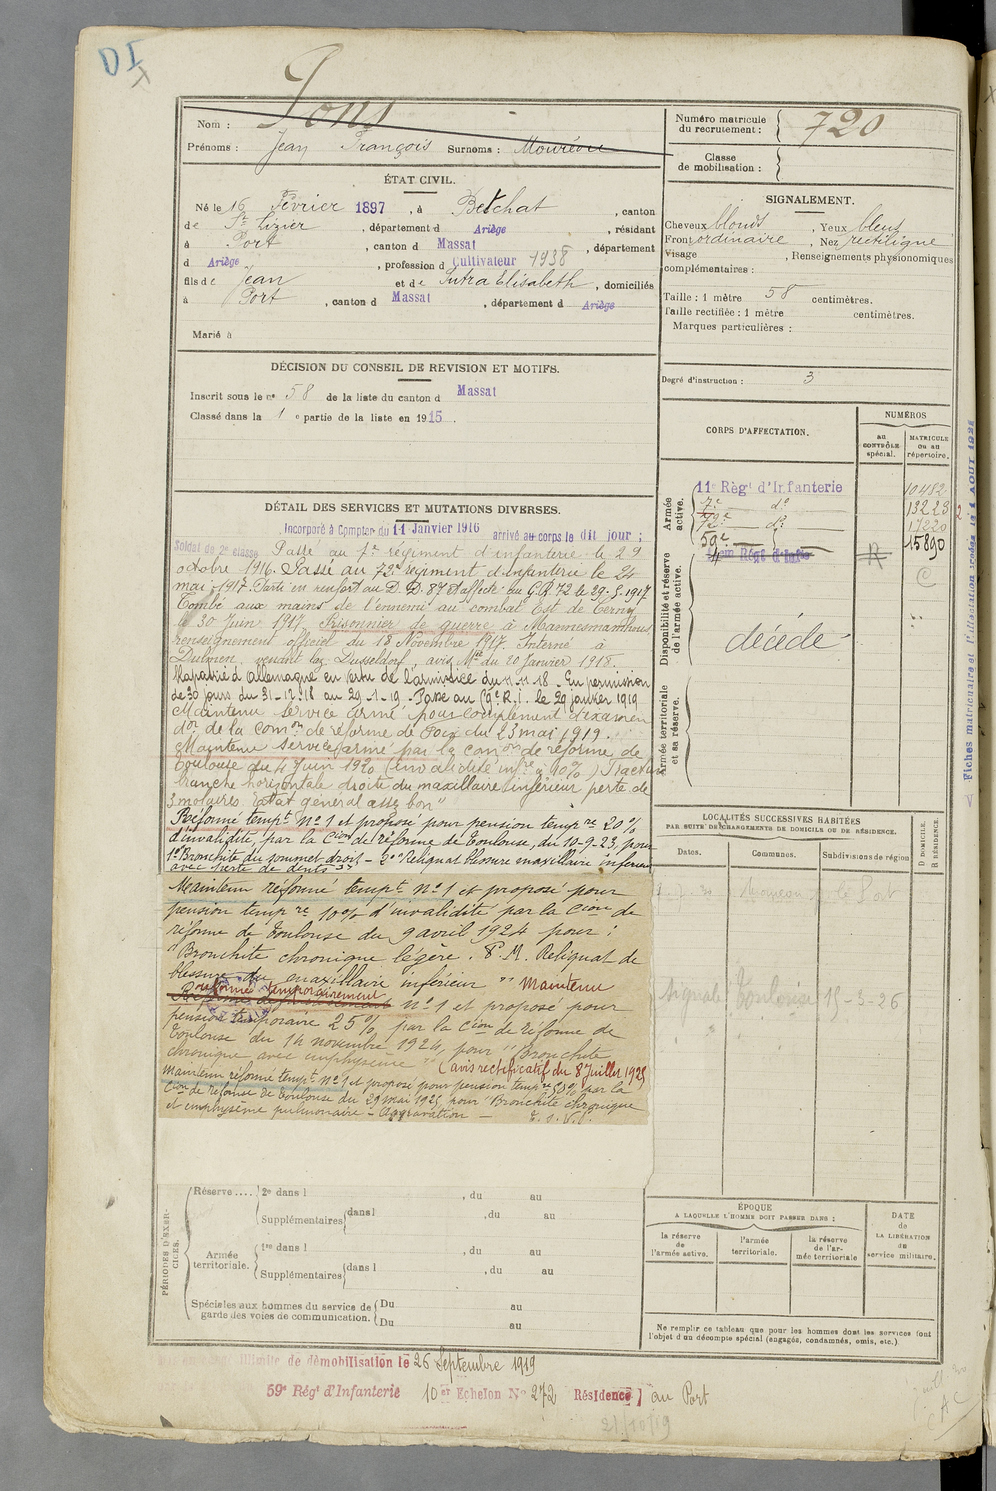 DI
Nom : Pons
Prénoms : Jean François Surnoms : Mourène
Numéro matricule
du recrutement : 720
Classe
de mobilisation :
ÉTAT CIVIL.
Né le 16 Février 1897, à Betchat, canton
de St Lizier, départemt d Ariège, résidant
à Port, canton d Massat, département
d Ariège, profession d Cultivateur 1938
fils de Jean et de Sutra Elisabeth, domiciliés
à Port, canton d Massat, département d Ariège
Marié à
SIGNALEMENT.
Cheveux blonds, Yeux bleus
Front ordinaire, Nez rectiligne
Visage , Renseignements physionomiques
complémentaires :
Taille : 1 mètre 58 centimètres.
Taille rectifiée : 1 mètre centimètres.
Marques particulières :
Degré d'instruction : 3
DÉCISION DU CONSEIL DE REVISION ET MOTIFS.
Inscrit sous le no 58 de la liste du canton d Massat
Classé dans la 1 e partie de la liste en 1915.
DÉTAIL DES SERVICES ET MUTATIONS DIVERSES.
Incorporé à Compter du 11 Janvier 1916 arrivé au corps le dit jour ;
Soldat de 2e classe Passé au 7e régiment d'infanterie le 29
octobre 1916. Passé au 72e régiment d'infanterie le 24
mai 1917. Parti en renfort au D. D. 87 et affecté au G.R. 72 le 29.5.1917
Tombé aux mains de l'ennemi au combat Est de Cerny
le 30 Juin 1917. Prisonnier de guerre à
renseignement officiel du 18 Novembre 1917. Interné à
Dulmen, venant laz. Dusseldorf, avis Mre du 20 Janvier 1918.
Rapatrié d'allemagne en vertu de l'armistice du 11.11.18 - En permission
de 30 jours du 31-12.18 au 29-1-19 - Passé au 59e R.I. le 29 janvier 1919
Maintenu service armé pour complément d'examen
don de la comon de réforme de Foix du 23 mai 1919.
Maintenu service armé par la comon de réforme de
Toulouse du 4 Juin 1920 (invalidité infre à 10%) Fracture
branche horizontale droite du maxillaire inférieur perte de
3 molaires Etat général assez bon"
Réformé tempt No 1 et proposé pour pension tempre 20%
d'invalidité, par la Cion de réforme de Toulouse, du 10-9-23, pour
1o Bronchite du sommet droit - 2o Reliquat blessure maxillaire inférieur
avec perte de dents
Maintenu réformé tempt No 1 et proposé pour
pension tempre 10% d'invalidité par la Cion de
réforme de Toulouse du 9 avril 1924 pour :
"Bronchite chronique légère. P.M. Reliquat de
blessure du maxillaire inférieur" Maintenu
réformé temporairement No 1 et proposé pour
pension temporaire 25% par la Cion de réforme de
Toulouse du 14 novembre 1924, pour "Bronchite
chronique avec emphysème" (avis rectificatif du 8 Juillet 1925
Maintenu réformé tempt No 1 et proposé pour pension tempre par la
Cion de réforme de Toulouse du 29 mai 1925 pour "Bronchite chronique
et emphysème pulmonaire - Aggravation -
CORPS D'AFFECTATION.
NUMÉROS
au
CONTRÔLE
spécial.
MATRICULE
ou au
répertoire.
Armée
active.
11e Règt d'Infanterie 10482
7e do 13223
72e do 17220
59e 15890
Règt d'Infie R
Disponibilité et réserve
de l'armée active.
décédé
Armée territoriale
et sa réserve.
LOCALITÉS SUCCESSIVES HABITÉES
PAR SUITE DE CHANGEMENTS DE DOMICILE OU DE RÉSIDENCE.
Dates. Communes. Subdivisions de région.
D DOMICILE.
R RÉSIDENCE.
le Port
Signalé Toulouse 15-3-26
PÉRIODES D'EXERCICES.
Réserve .... 2e dans l , du au
Supplémentaires dans l , du au
Armée
territoriale. 1re dans l , du au
Supplémentaires dans l , du au
Spéciales aux hommes du service de
garde des voies de communication. Du au
Du au
ÉPOQUE
A LAQUELLE L'HOMME DOIT PASSER DANS :
la réserve
de
l'armée active.
l'armée
territoriale.
la réserve
de l'ar-
mée territoriale
DATE
de
LA LIBÉRATION
du
service militaire.
Ne remplir ce tableau que pour les hommes dont les services font
l'objet d'un décompte spécial (engagés, condamnés, omis, etc.).
illimité de démobilisation le 26 Septembre 1919
59e Règt d'Infanterie 10 Echelon No 272 Résidence au Port
21/10/19